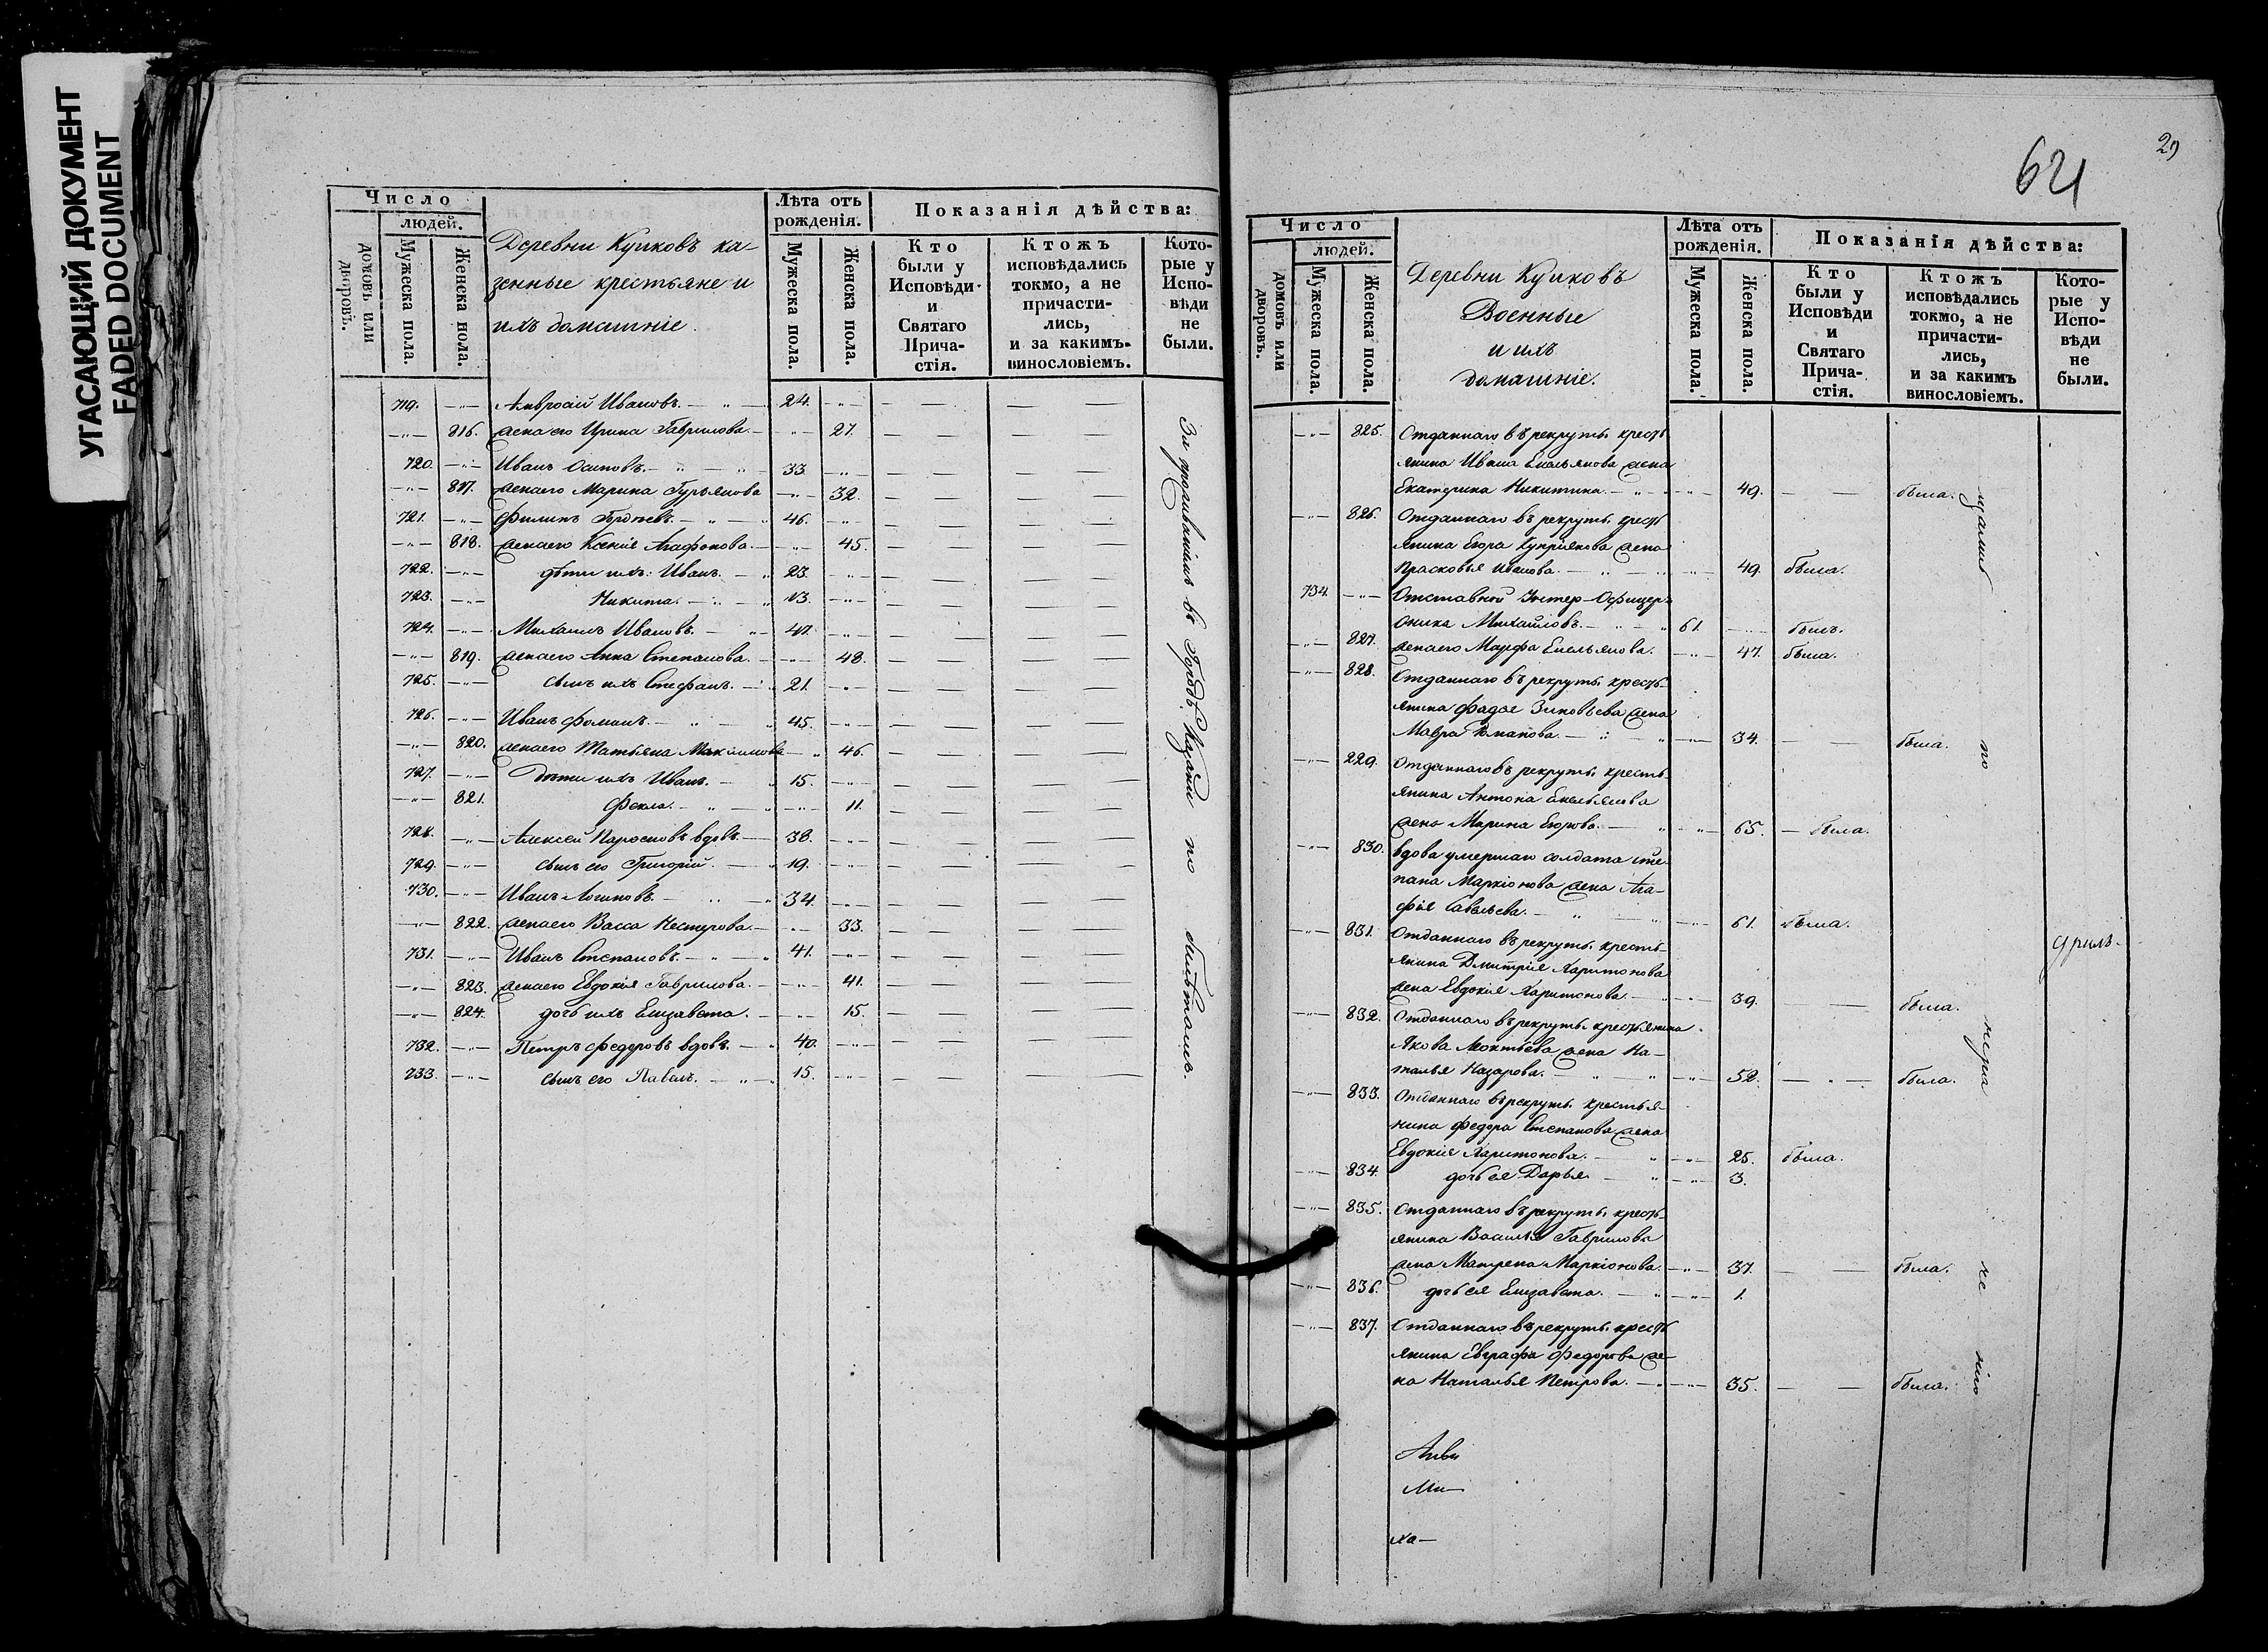 УГАСАЮЩИЙ ДОКУМЕНТ
FADED DOCUMENT
Число
людей.
домовъ или дворовъ.
Мужеска пола.
Женска пола.
Деревни Куиковъ ка-
зенные крестьяне и
ихъ домашніе.
Лѣта отъ рожденія.
Мужеска пола.
Женска пола.
Показанія дѣйства:
Кто были у Исповѣди и Святаго Прича-стія.
Ктожъ исповѣдались токмо, а не причасти-лись, и за какимъ-винословіемъ.
Кото-рые у Испо-вѣди не были.
719. —"— Амвросій Ивановъ. — " — 24. —"— — — —
—"— 816. жена его Ирина Гаврилова. — —"— 27. — — —
720. —"— Иванъ Осиповъ. — " — " — 33. —"— — — —
—"— 817. жена его Марина Гурьянова —"— 32. — — —
721. —"— Филипъ — " — " 46. —"— — — —
—"— 818. жена его Ксенія Агафонова. — —"— 45. — — —
722. —"— дѣти ихъ: Иванъ. — " 23. —"— — — —
723. —"— Никита. — " — " 13. —"— — — —
724. —"— Михаилъ Ивановъ. — " — 47. —"— — — —
—"— 819. жена его Анна Степанова. — —"— 48. — — —
725. —"— сынъ ихъ Стефанъ. — " 21. —"— — — —
726. —"— Иванъ Фоминъ. — " — " 45. —"— — — —
—"— 820. жена его Татьяна Максимова — " 46. — — —
727. —"— дѣти ихъ Иванъ. — " 15. —"— — — —
—"— 821. Фекла. — " — " —"— 11. — — —
728. —"— Алексей вдовъ. — 38. —"— — — —
729. —"— сынъ его Григорій. — " 19. —"— — — —
730. —"— Иванъ Логиновъ. — " — " 34. —"— — — —
—"— 822. жена его Васса Нестерова. — —"— 33. — — —
731. —"— Иванъ Степановъ. — " — " 41. —"— — — —
—"— 823. жена его Евдокія Гаврилова. — —"— 41. — — —
—"— 824. дочь ихъ Елизавета. — —"— 15. — — —
732. —"— Петръ Федоровъ вдовъ. — " 40. —"— — — —
733. —"— сынъ его Павелъ. — " — " 15. —"— — — —
За проживаніемъ въ Городѣ Казани по билѣтамъ.
29
621
Число
людей.
домовъ или дворовъ.
Мужеска пола.
Женска пола.
Деревни Куиковъ
Военные
и ихъ
домашніе.
Лѣта отъ рожденія.
Мужеска пола.
Женска пола.
Показанія дѣйства:
Кто были у Исповѣди и Святаго Прича-стія.
Ктожъ исповѣдались токмо, а не причасти-лись, и за какимъ винословіемъ.
Кото-рые у Испо-вѣди не были.
—"— 825. Отданнаго въ рекруты кресть
янина Ивана Емельянова жена
Екатерина Никитина. — " — —"— 49. — — была.
—"— 826. Отданнаго въ рекруты кресть
янина Егора Куприянова жена
Прасковья Иванова. — " — " —"— 49. была.
734. —"— Отставной Унтер-Офицеръ
Михайловъ. — " — " 61. —"— былъ.
—"— 827. жена его Марфа Емельянова. —"— 47. была.
—"— 828. Отданнаго въ рекруты кресть-
янина Фадѣя Зиновьева жена
Мавра Романова. — " — " —"— 34. — — была.
—"— 229. Отданнаго въ рекруты кресть-
янина Антона Емельянова
жена Марина Егорова. — " —"— 65. — была.
—"— 830. вдова умершаго солдата Сте-
пана Маркіонова жена Ага-
фія Савельева. — " — " —"— 61. была.
—"— 831. Отданнаго въ рекруты кресть-
янина Дмитрія Харитонова
жена Евдокія Харитонова. — —"— 39. — — была.
—"— 832. Отданнаго въ рекруты крестьянина
Якова жена На-
талья Назарова. — " — " —"— 52. — " — была.
—"— 833. Отданнаго въ рекруты крестья-
нина Федора Степанова жена
Евдокія Харитонова. — " —"— 25. была.
—"— 834. дочь ея Дарья — " —"— 3.
—"— 835. Отданнаго въ рекруты кресть-
янина Василія Гаврилова
жена Матрена Маркіонова. —"— 37. — — была.
—"— 836. дочь ея Елизавета. — " —"— 1.
—"— 837. Отданнаго въ рекруты кресть
янина Евграфа Федорова же-
на Наталья Петрова. — " —"— 35. — — была.
по
не
Ми—
ха—